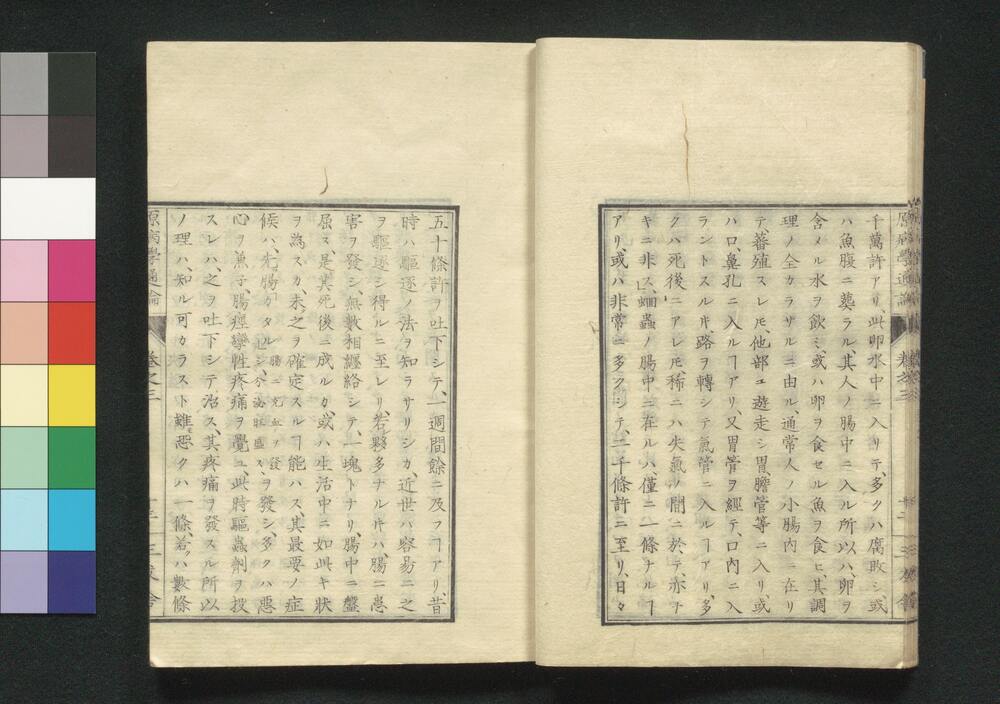 千萬許アリ、此卵水中ニ入リテ、多クハ腐敗シ、或
ハ魚腹ニ葬ラル、其人ノ腸中ニ入ル所以ハ、卵ヲ
含メル水ヲ飲ミ、或ハ卵ヲ食セル魚ヲ食ヒ其調
理ノ全カラサルニ由ル、通常人ノ小腸内ニ在リ
テ、蕃殖スレ𪜈、他部ユ遊走シ胃、膽管等ニ入リ、或
ハ口、鼻孔ニ入ルヿアリ、又胃管ヲ經テ、口内ニ入
ラントスル𪜈路ヲ轉シテ氣管ニ入ルヿアリ、多
クハ死後ニアレ𪜈、稀ニハ失氣ノ間ニ於テ亦子
キニ非ス、蛔蟲ノ腸中ニ在ルハ、僅ニ一條ナルヿ
アリ、或ハ非常ニ多クシテ、二千條許ニ至リ、日々
原病學通論
卷之三
五十條許ヲ吐下シテ、一週間餘ニ及フヿアリ、昔
時ハ驅逐ノ法ヲ知ラサリシカ、近世ハ容易ニ之
ヲ驅逐シ得ルニ至レリ、若夥多ナル𪜈ハ、腸ニ患
害ヲ發シ、無數相纏絡シテ、一塊トナリ、腸中ニ盤
屈ス是其死後ニ成ルカ、或ハ生活中ニ如此キ狀
ヲ為スカ、未之ヲ確定スルヿ能ハス、其最要ノ症
候ハ、先腸「カタル」腸ニ充血ヲ發シ、分泌旺盛スヲ發シ、多クハ惡
心ヲ兼子、腸痙攣性疼痛ヲ覺ユ、此時驅蟲劑ヲ投
スレハ、之ヲ吐下シテ治ス、其疼痛ヲ發スル所以
ノ理ハ、知ル可カラスト雖、惡クハ一條、若クハ數條
原病學通論
卷之三